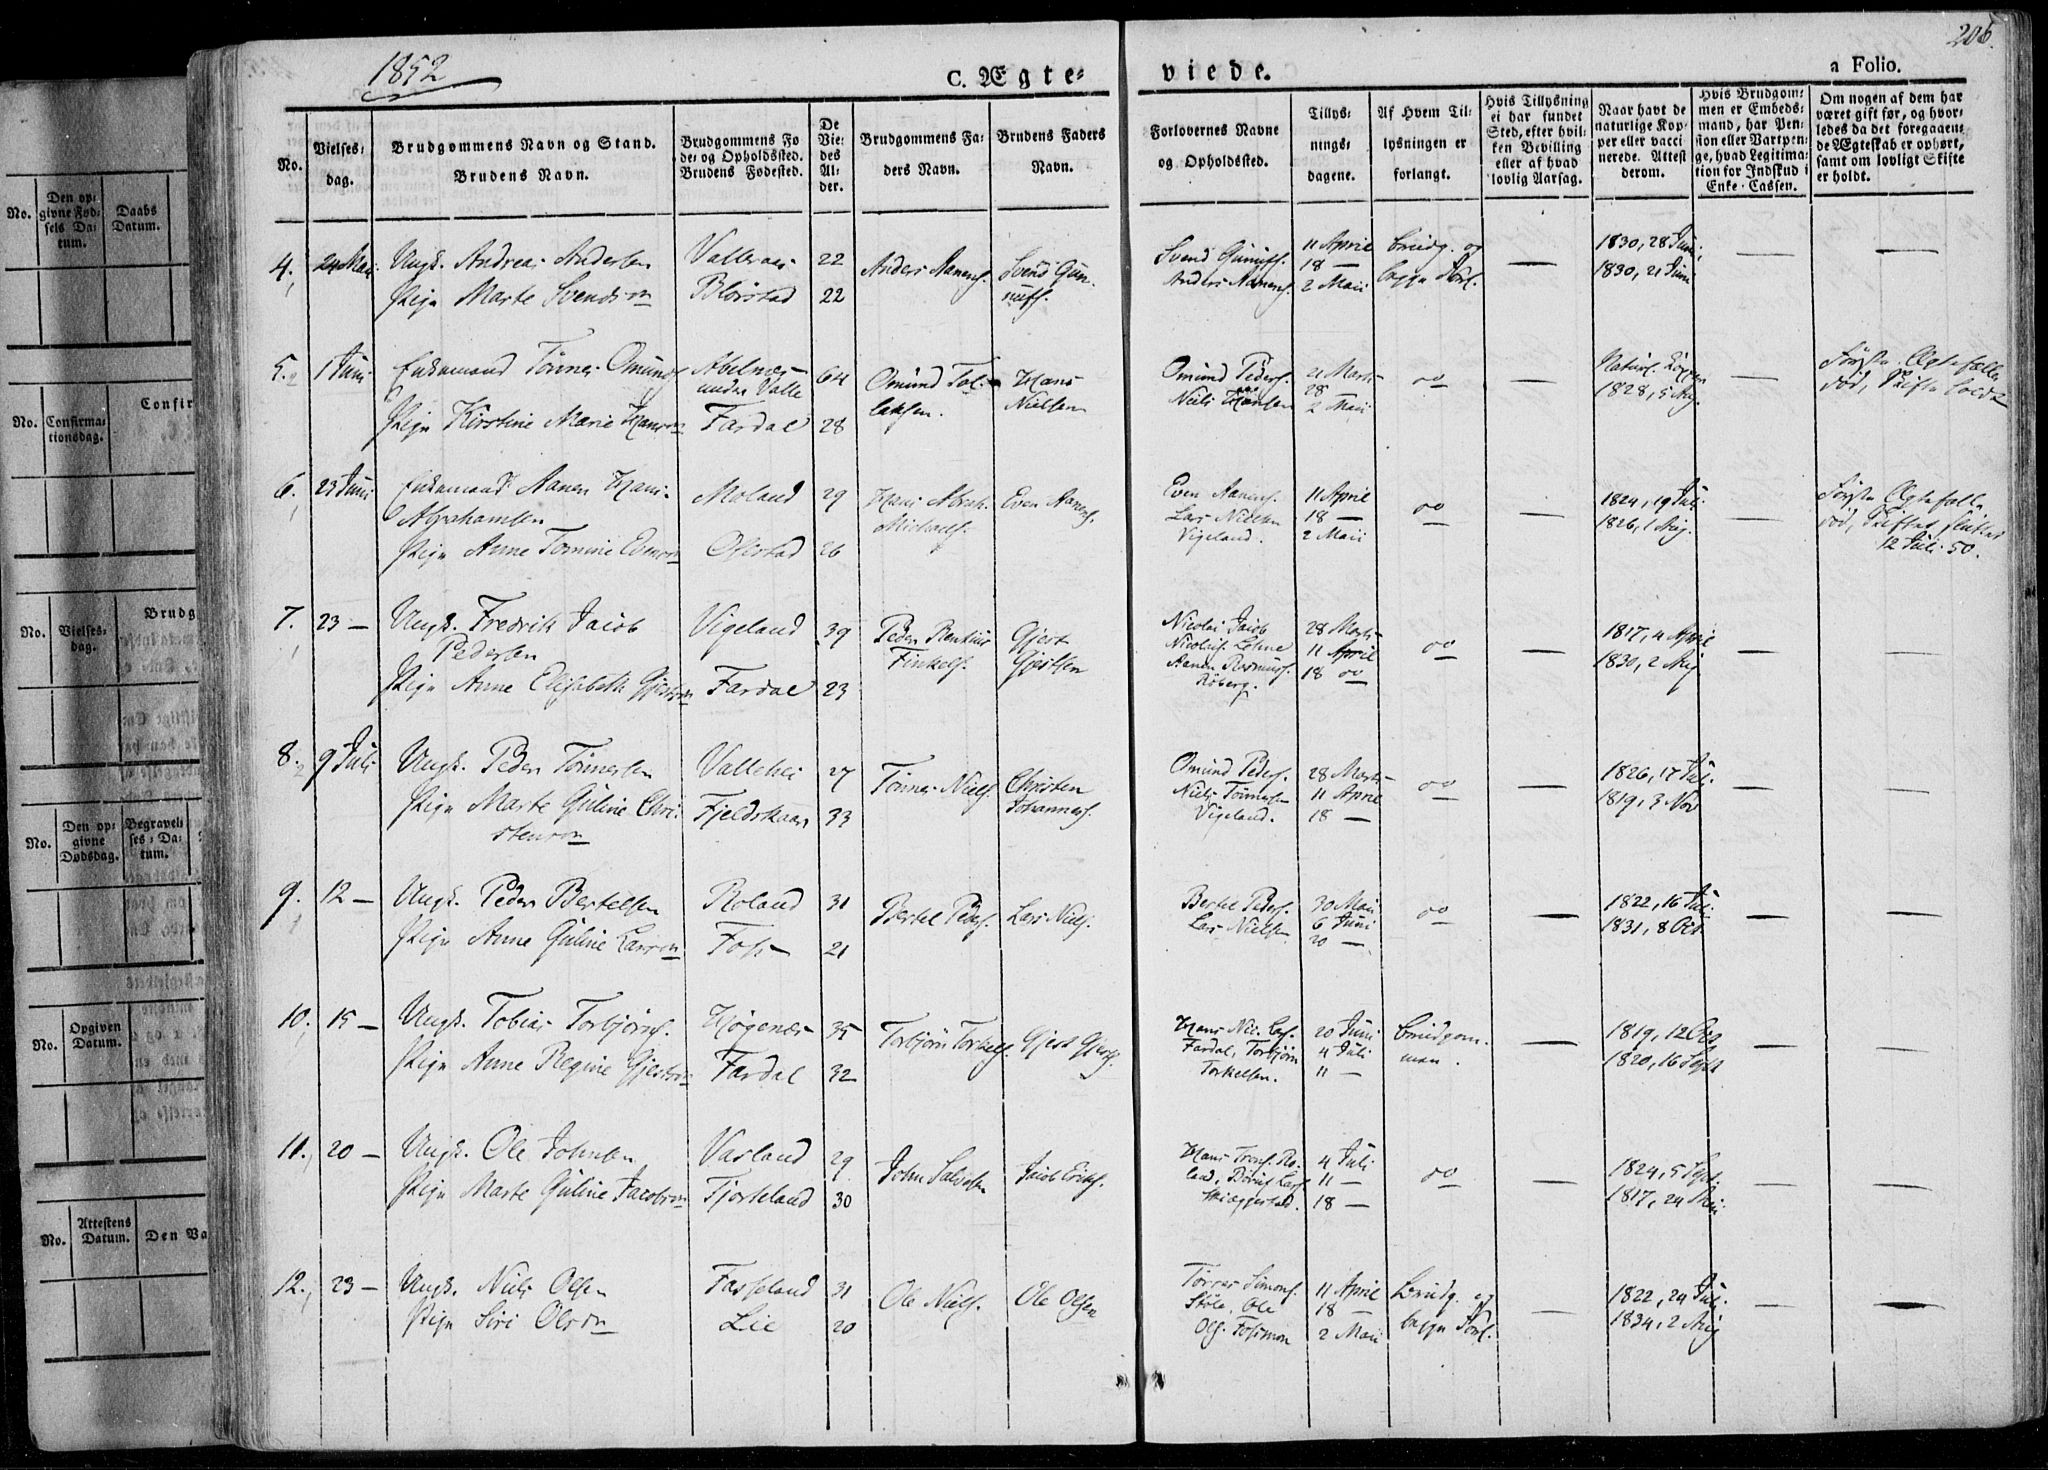 1852
C. Ægte-
viede.
a Folio.
206.
No.
Vielses-
dag.
Brudgommens Navn og Stand.
Brudens Navn.
Brudgommens Fø
de- og Opholdssted.
Brudens Fødested.
De
Vie-
des
Al-
der.
Brudgommens Fa-
ders Navn.
Brudens Faders
Navn.
Forlovernes Navne
og Opholdssted.
Tillys-
nings-
dagene.
Af Hvem Til-
lysningen er
forlangt.
Hvis Tillysning
ei har fundet
Sted, efter hvil-
ken Bevilling
eller af hvad
lovlig Aarsag.
Naar havt de
naturlige Kop-
per eller vacci
nerede. Attest
derom.
Hvis Brudgom-
men er Embeds-
mand, har Pen-
sion eller Vartpen-
ge, hvad Legitima-
tion for Indskud i
Enke-Cassen.
Om nogen af dem har
været gift før, og hvor-
ledes da det foregaaen-
de Ægteskab er ophørt,
samt om lovligt Skifte
er holdt.
4, 24 Mai Ungk. Andreas Andersen
Valleraas 22
Pige Marte Svendsen
Blørstad 22
Anders Aanens.
Svend Gun-
nufs.
Svend Gunufs.
Anders Aanens.
11 April
18 —
2 Maii
brudg. og
begge Forl.
—
1830, 28 Juni
1830, 21 Juni
—
—
5. 1 Juni Enkemand Tønnes Omunds.
Abelnes
under Valle 64
Pige Kirstine Marie Hans
Fardal 28
Omund Tol-
laksen.
Hans
Nielsen
Omund Peders.
Niels Hansen
21 Marts
28
2 Maii
oo
—
Naturl. Kopper
1828, 5 Aug.
—
Første Ægtefælle
død, Skifte holdt
6, 23 Juni Enkemand Aanen Hans
Abrahamsen
Moland 29
Pige Anne Tomine Evens
Ofistad 26
Hans Abrah.
Michaels.
Even Aanens.
Even Aanens.
Lars Nielsen
Vigeland.
11 April
18 —
2 Maii
oo
—
1824, 19 Juli
1826, 1 Aug.
—
Første Ægtefælle
død, Skiftet sluttet
12 Juli 50.
7. 23 — Ungk. Fredrik Jacob
Pedersen
Vigeland 39
Pige Anne Elisabeth Gjests
Fardal 23
Peder Rentius
Finkels.
Gjest
Gjestsen
Nicolai Jacob
Nicolais. Lehne
Aanen Rasmus.
Røberg.
28 Marts
11 April
18 oo
oo
—
1817, 4 April
1830, 2 Aug
—
—
8. 9 Juli Ungk. Peder Tønnesen
Vallehei 27
Pige Marte Guline Chri-
stens
Fjeldskaar 33
Tønnes Niels.
Christen
Johannes.
Omund Peders.
Niels Tønnesen
Vigeland.
28 Marts
11 April
18 —
oo
—
1826, 17 Juli
1819, 3 Nov
—
—
9. 12 — Ungk. Peder Bertelsen
Roland 31
Pige Anne Guline Lars
Foss 21
Bertel Peders.
Lars Niels.
Bertel Peders.
Lars Nielsen
30 Maii
6 Juni
20 —
oo
—
1822, 16 Juli
1831, 8 Oct
—
—
10. 15 — Ungk. Tobias Torbjørns.
Høgenes 35
Pige Anne Regine Gjests
Fardal 32
Torbjørn Torkels.
Gjest Gjests.
Hans Nic. Lass.
Fardal, Torbjørn
Torkelsen.
20 Juni
4 Juli
11 —
brudgom-
men.
—
1819, 12 Oct
1820, 16 Sept
—
—
11. 20 — Ungk. Ole Johnsen
Vasland 29
Pige Marte Guline Jacobs
Fjorkeland 30
John Salvesen
Jacob Eriks.
Hans Trons. Ro-
land,
4 Juli
11 —
18 —
oo
—
1824, 5 Sept
1817, 24 Mai
—
—
12. 23 — Ungk. Niels Olsen
Fasseland 31
Pige Siri Ols
Lie 20
Ole Niels.
Ole Olsen
Tørres Simons.
Støle, Ole
Ols. Fossmon
11 April
18 —
2 Maii
brudg. og
begge Forl.
—
1822, 24 Juli
1834, 2 Aug
—
—
No.
Den op-
givne Fød-
sels Da-
tum.
Daabs
Datum.
Confir
No.
Confirma-
tionsdag.
Brudg
No.
Vielses-
dag.
No.
Den op-
givne
Dødsdag.
Begravel-
ses-Da-
tum.
No.
Opgiven
Datum.
No.
Attestens
Datum.
Den Va